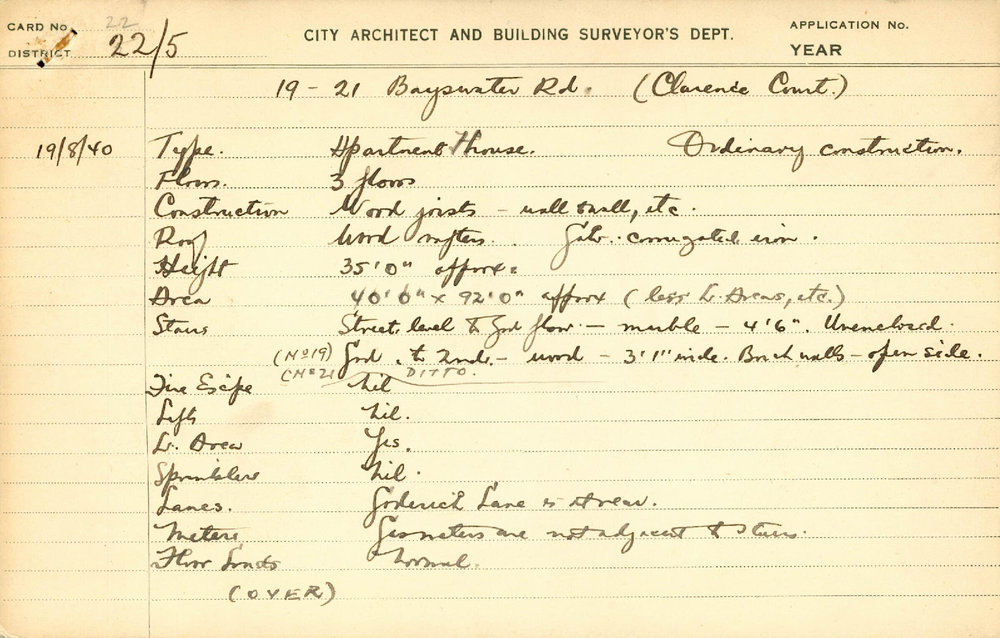 CARD No. 22
DISTRICT 22/5
CITY ARCHITECT AND BUILDING SURVEYOR'S DEPT.
APPLICATION No.
YEAR
19 - 21 Bayswater Rd. (Clarence Court.)
19/8/40 Type. Apartment House. Ordinary construction.
Floors. 3 floors
Construction Wood joists - wall to wall, etc.
Roof Wood rafters. Galv. corrugated iron.
Height 35'0" approx.
Area 40'0" x 92'0" approx (less L. Areas, etc.)
Stairs Street level to Grd floor - marble - 4'6". Unenclosed.
(No 19) Grd. to 2nd. - wood - 3'1" wide. Brick walls - open side.
(No 21 DITTO.
Fire Escape Nil
Lifts Nil.
L. Area Yes.
Sprinklers Nil.
Lanes. Goderich Lane is at rear.
Meters Gas meters are not adjacent to stairs.
Floor Loads Normal.
(OVER)